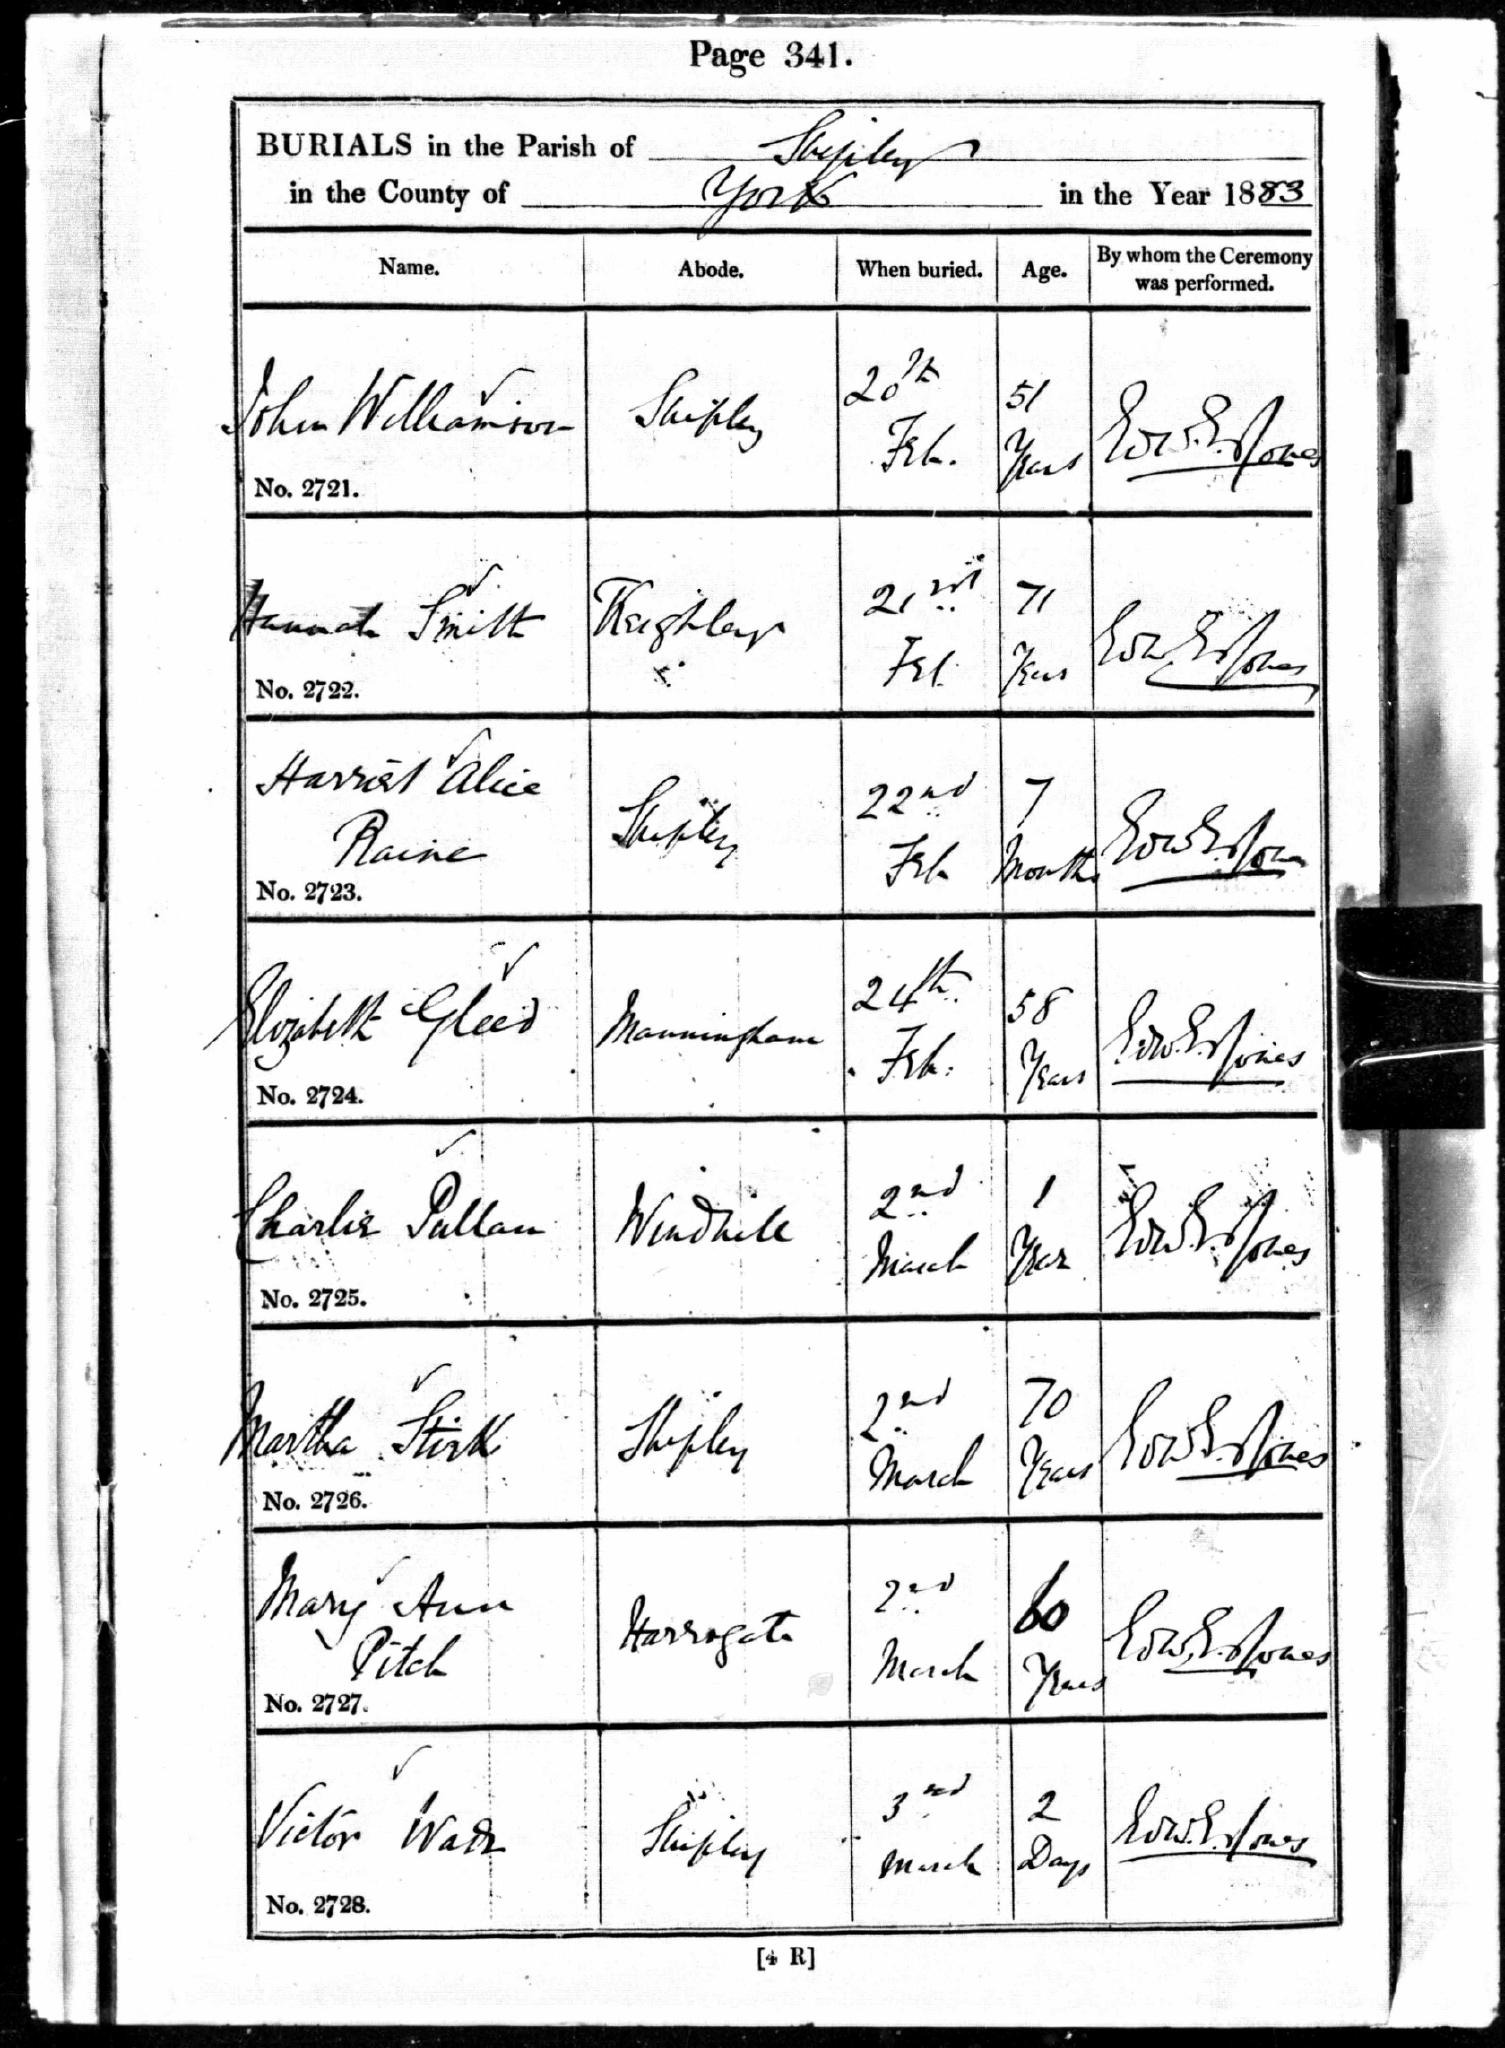 Page 341.
BURIALS in the Parish of Shipley
in the County of York in the Year 1883
Name. Abode. When buried. Age. By whom the Ceremony was performed.
John Williamson Shipley 20th Feb. 51 Years Edw. E. Jones
No. 2721.
Hannah Smith Keighley 21st Feb. 71 Years Edw. E. Jones
No. 2722.
Harriet Alice Raine Shipley 22nd Feb 7 Months Edw. E. Jones
No. 2723.
Elizabeth Gleed Manningham 24th Feb. 58 Years Edw. E. Jones
No. 2724.
Charlie Pullan Windhill 2nd March 1 Year Edw. E. Jones
No. 2725.
Martha Stirk Shipley 2nd March 70 Years Edw. E. Jones
No. 2726.
Mary Ann Pitch Harrogate 2nd March 60 Years Edw. E. Jones
No. 2727.
Victor Wade Shipley 3rd March 2 Days Edw. E. Jones
No. 2728.
[4 R]